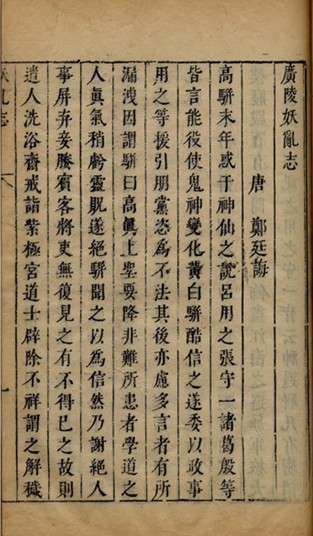 廣陵妖亂志
唐　鄭廷誨
高駢末年惑于神仙之說呂用之張守一諸葛殷等
皆言能役使鬼神變化黃白駢酷信之遂委以政事
用之等援引朋黨恣為不法其後亦慮多言者有所
漏洩因謂駢曰高眞上聖要降非難所患者學道之
人眞氣稍虧靈貺遂絕駢聞之以為信然乃謝絕人
事屏弃妾媵賓客將吏無復見之有不得已之故則
遣人洗浴齋戒詣紫極宮道士辟除不祥謂之解穢
妖亂志
一